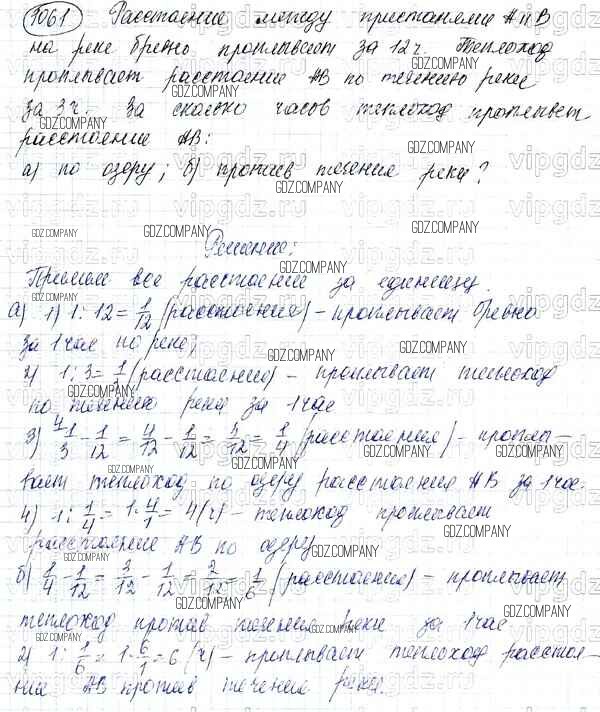 1061 Расстояние между пристанями А и В
на реке бревно проплывает за 12 ч. Теплоход
проплывает расстояние АВ по течению реки
за 3 ч. За сколько часов теплоход проплывет
расстояние АВ:
а) по озеру; б) против течения реки?
Решение:
Примем все расстояние за единицу.
а) 1) 1 : 12 = 1/12 (расстояния) – проплывает бревно
за 1 час по реке;
2) 1 : 3 = 1/3 (расстояния) – проплывает теплоход
по течению реки за 1 час
3) 1/3 - 1/12 = 4/12 - 1/12 = 3/12 = 1/4 (расстояния) – проплы-
вает теплоход по озеру расстояния АВ за 1 час.
4) 1 : 1/4 = 1 · 4/1 = 4 (ч) – теплоход проплывает
расстояние АВ по озеру
б) 1/4 - 1/12 = 3/12 - 1/12 = 2/12 = 1/6 (расстояния) – проплывает
теплоход против течения реки за 1 час
2) 1 : 1/6 = 1 · 6/1 = 6 (ч) – проплывает теплоход расстоя-
ние АВ против течения реки.